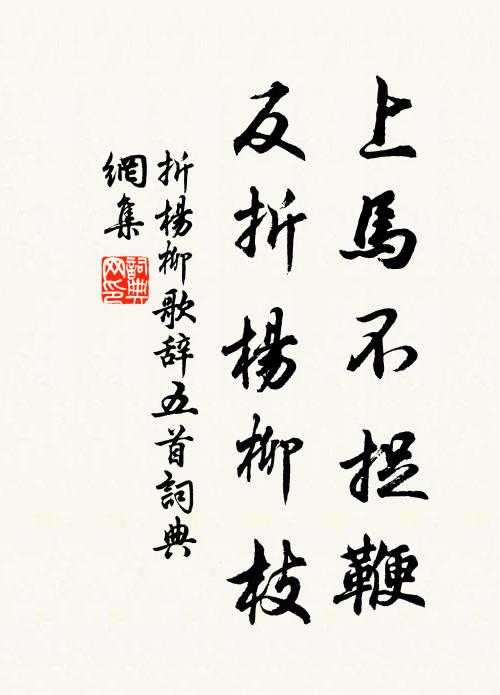 上馬不捉鞭
反折楊柳枝
折楊柳歌辞五首詞典
網集
詞典網印